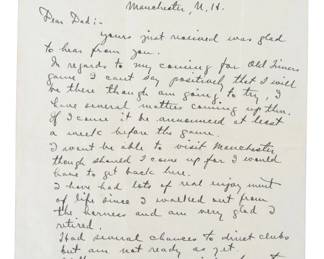 Manchester, N.H.
Dear Dad:-
yours just received was glad
to hear from you.
In regards to my coming for Old Timers
game I cant say positively that I will
be there though am going to try, I
have several matters coming up then.
If I come it be announced at least
a week before the game.
I wont be able to visit Manchester
though should I come up for I would
have to get back here.
I have had lots of real enjoyment
of life since I walked out from
the harness and am very glad I
retired.
Had several chances to direct clubs
but am not ready as yet